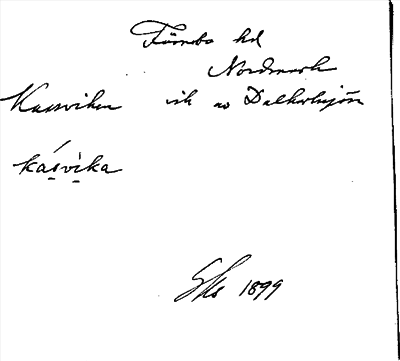 Färnebo hd
Nordmark
Kasviken vik av Dalkarlsjön
kásvika
1899